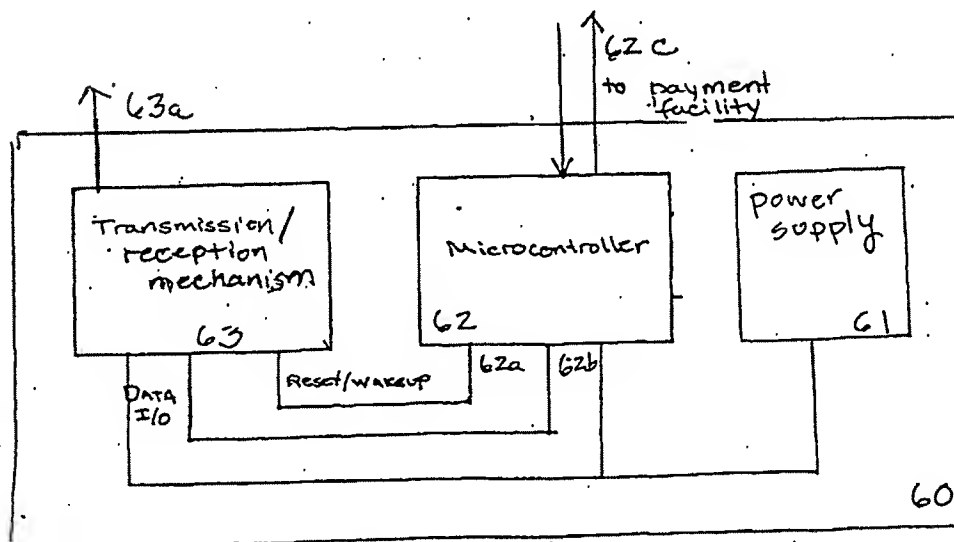 62c
to payment
facility
63a
Transmission/
reception
mechanism
63
Microcontroller
62
power
supply
61
DATA
I/O
Reset/wakeup
62a
62b
60